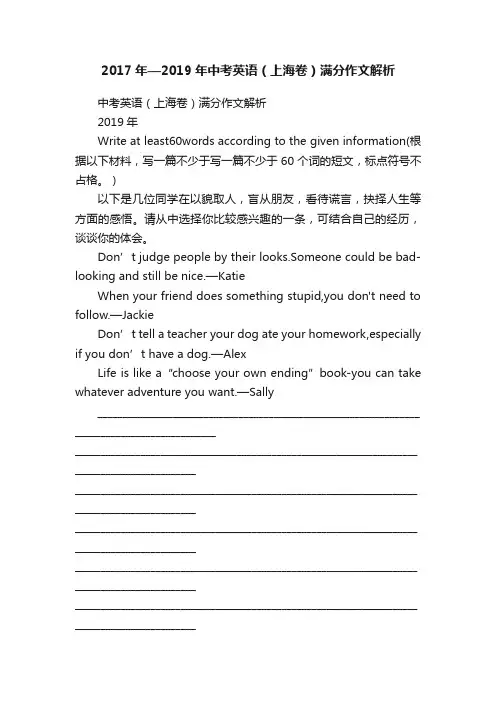 2017年—2019年中考英语（上海卷）满分作文解析
中考英语（上海卷）满分作文解析
2019年
Write at least60words according to the given information(根
据以下材料，写一篇不少于写一篇不少于60个词的短文，标点符号不
占格。）
以下是几位同学在以貌取人，盲从朋友，看待谎言，抉择人生等
方面的感悟。请从中选择你比较感兴趣的一条，可结合自己的经历，
谈谈你的体会。
Don’t judge people by their looks.Someone could be bad-
looking and still be nice.—Katie
When your friend does something stupid,you don't need to
follow.—Jackie
Don’t tell a teacher your dog ate your homework,especially
if you don’t have a dog.—Alex
Life is like a“choose your own ending”book-you can take
whatever adventure you want.—Sally